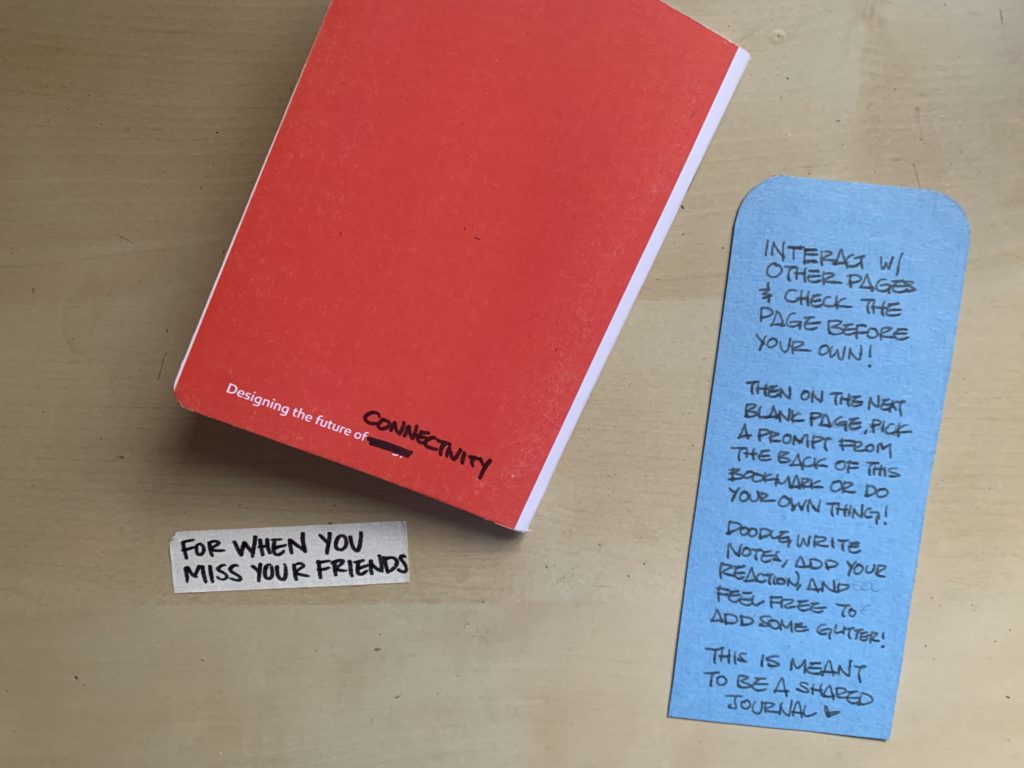 Designing the future of
CONNECTIVITY
FOR WHEN YOU
MISS YOUR FRIENDS
INTERACT W/
OTHER PAGES
& CHECK THE
PAGE BEFORE
YOUR OWN!
THEN ON THE NEXT
BLANK PAGE, PICK
A PROMPT FROM
THE BACK OF THIS
BOOKMARK OR DO
YOUR OWN THING!
DOODLE, WRITE
NOTES, ADD YOUR
REACTION, AND
FEEL FREE TO
ADD SOME GLITTER!
THIS IS MEANT
TO BE A SHARED
JOURNAL ♥